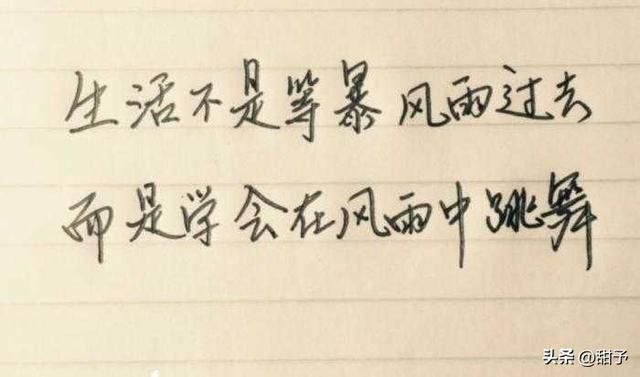 生活不是等暴风雨过去
而是学会在风雨中跳舞
头条 @甜予